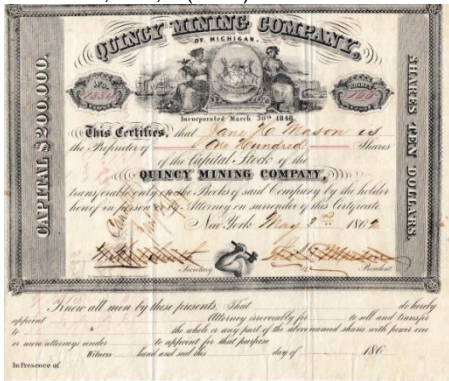 QUINCY MINING COMPANY,
OF MICHIGAN.
No.
1334
SHARES
100
Incorporated March 30th 1848.
CAPITAL $200.000.
SHARES TEN DOLLARS.
This Certifies, that Jane H. Mason is
the Proprietor of One Hundred Shares
of the Capital Stock of the
QUINCY MINING COMPANY,
transferable only on the Books of said Company by the holder
hereof in person or by Attorney on surrender of this Certificate
New York May 3rd 1862
Secretary
President
Know all men by these presents, That do hereby
appoint Attorney irrevocably for to sell and transfer
to the whole or any part of the above named shares with power one
or more attorneys under to appoint for that purpose
Witness hand and seal this day of 186
In Presence of